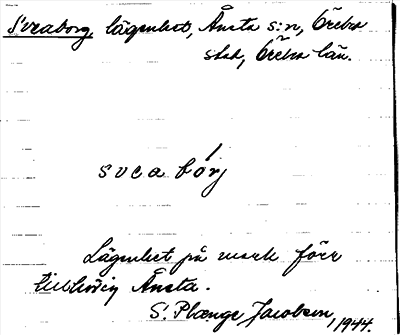 Sveaborg, lägenhet, Ånsta s:n, Örebro
stad, Örebro län.
svea bórj
Lägenhet på mark förr
tillhörig Ånsta.
S. Plænge Jacobson, 1944.